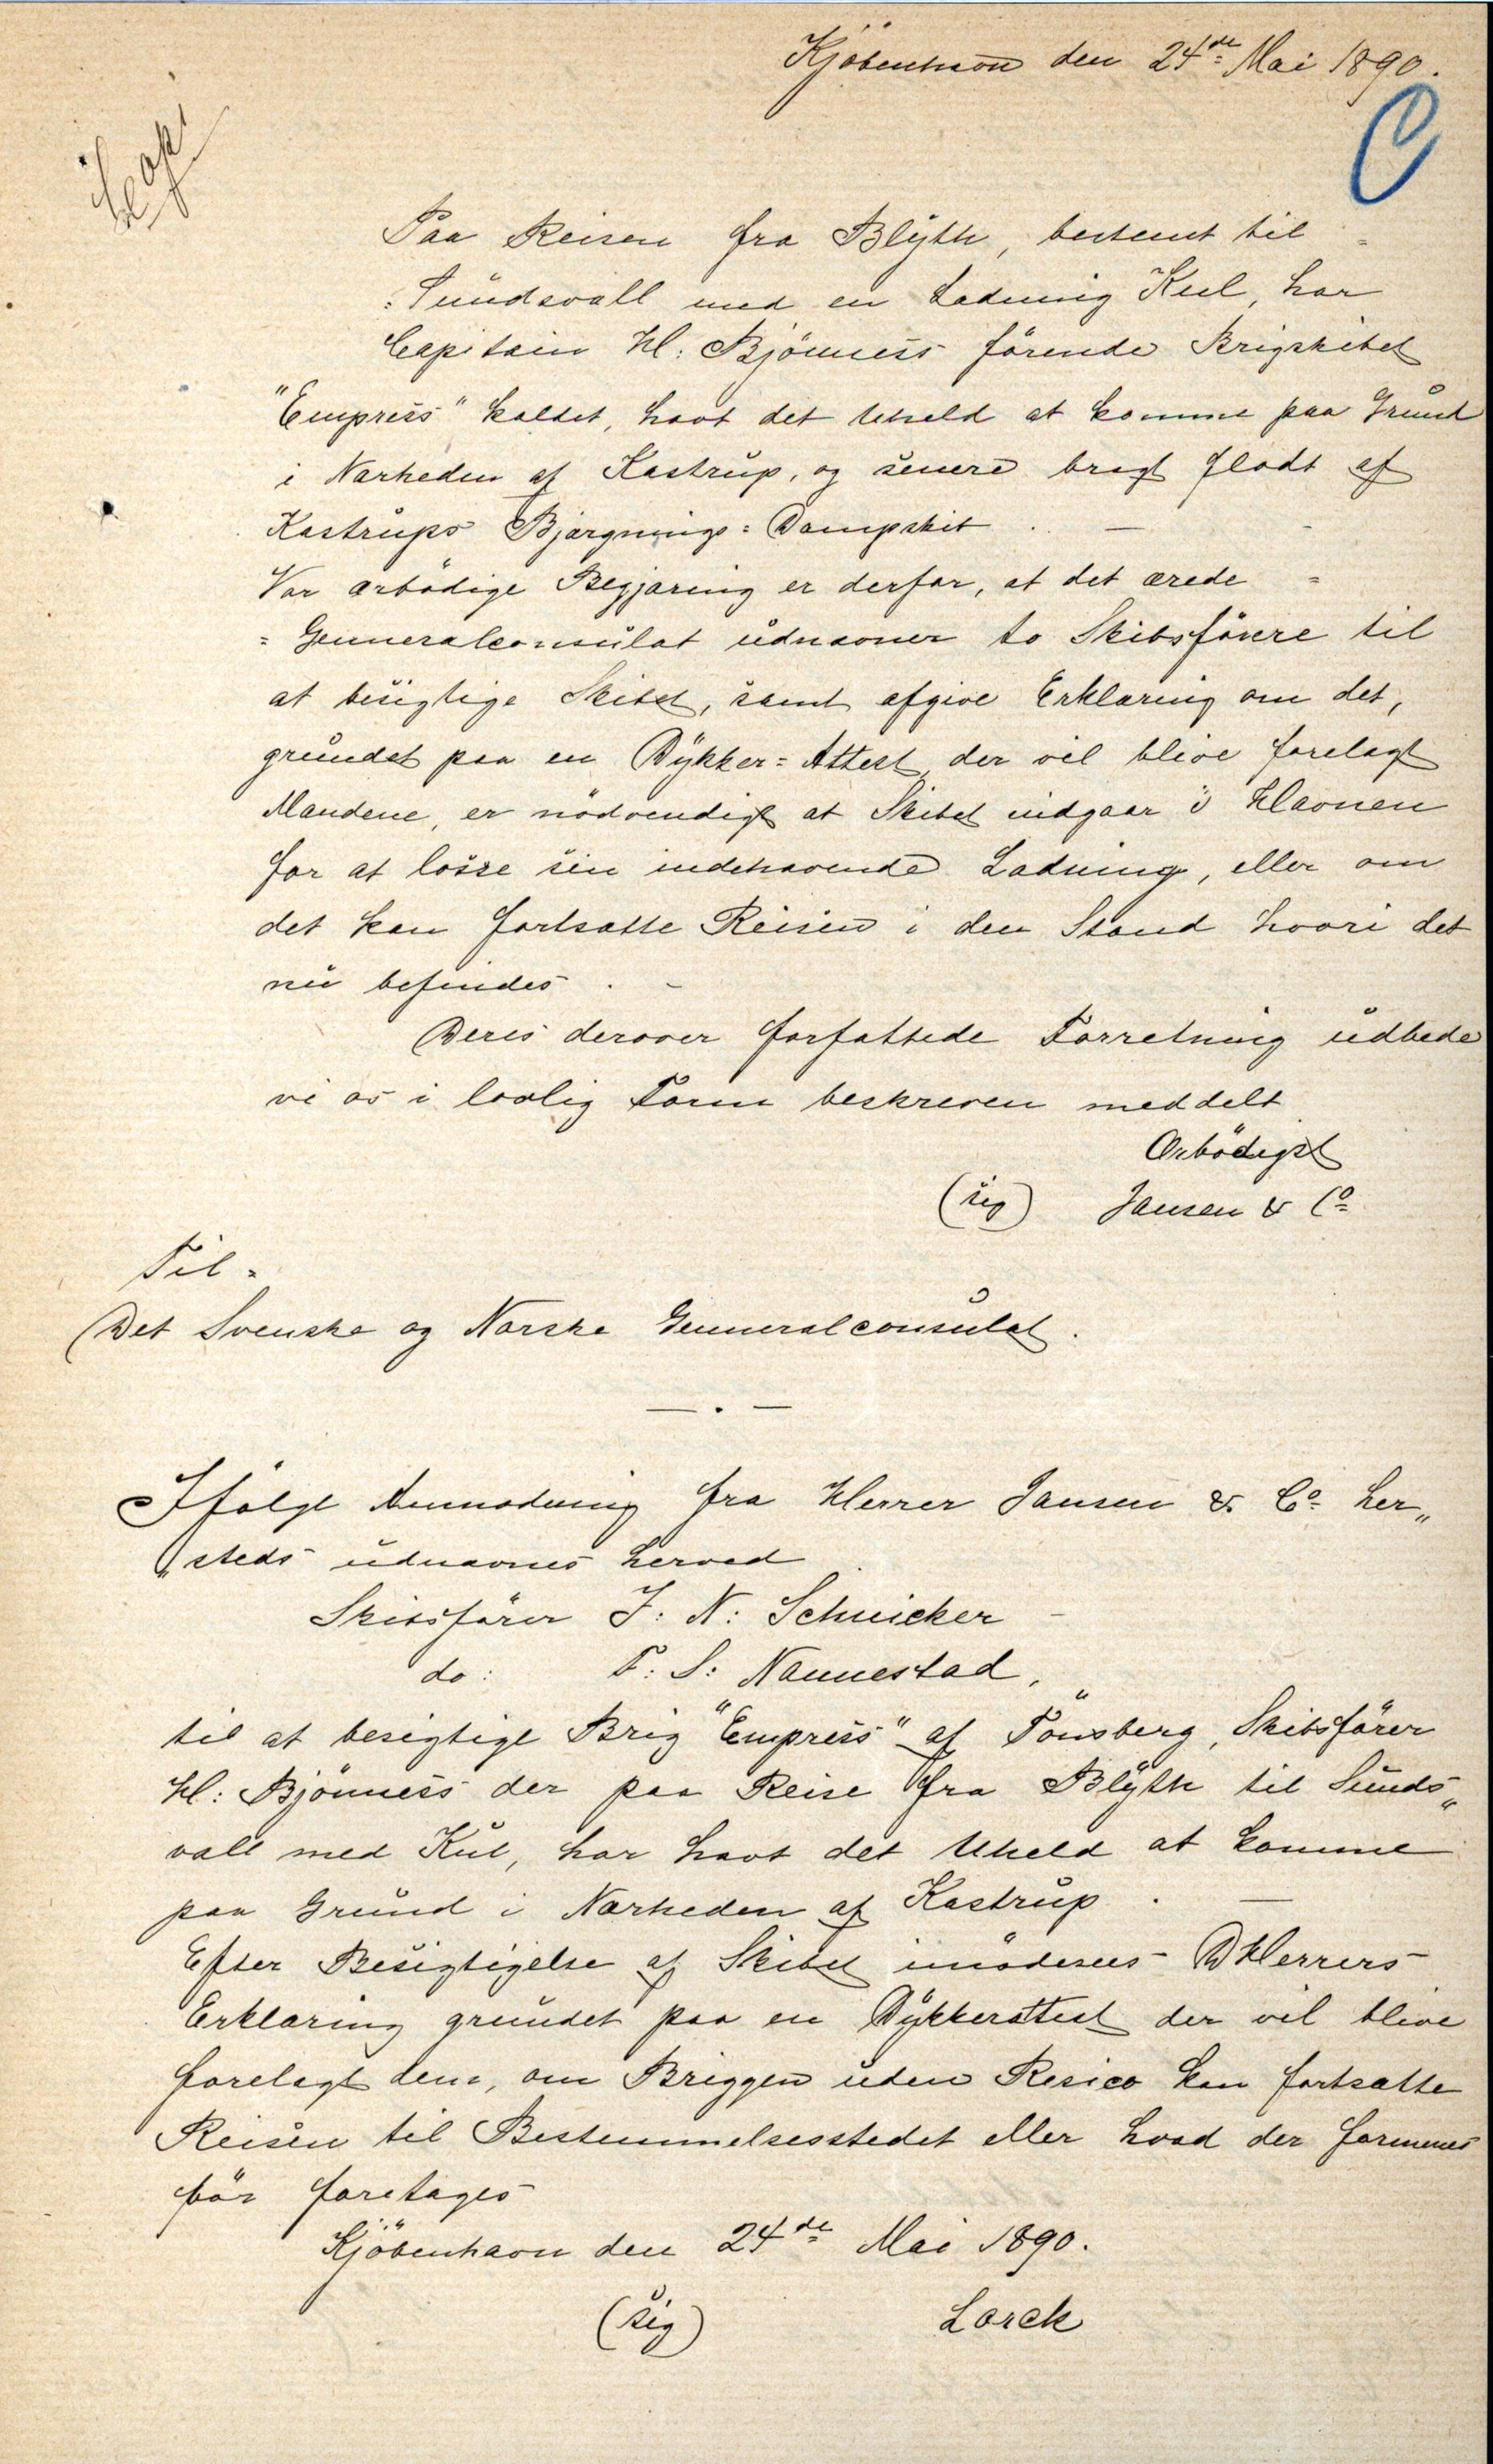 Kjöbenhavn den 24de Mai 1890.
C
Cop.
Paa Reisen fra Blÿth, bestemt til =
= Sundsvall med en Ladning Kul, har
Capitain H: Bjönness förende Brigskibet
"Empress" kaldet, havt det Uheld at komme paa Grund
i Narheden af Kastrup, og senere bragt flodt af
Kastrups Bjargnings= Dampskib . —
Vor arbödige Begjaring er derfor, at det ærede =
= Genneralconsulat udnavner to Skibsförere til
at besigtige Skibet, samt afgive Erklaring om det,
grundet paa en Dÿkker= Attest der vil blive forelagt
Mandene, er nödvendigt at Skibet indgaar i Havnen
for at losse sin indehavende Ladning, eller om
det kan fortsatte Reisen i den Stand hvori det
nu befindes . –
Deres derover forfattede Forretning udbede
vi os i lovlig Form beskreven meddelt
Ærbödigst
(sig) Jansen & Co
Til =
Det Svenske og Norske Genneralconsulat.
— . —
Ifölge Anmodning fra Herrer Jansen & Co her„
„steds udnavnes herved
Skibsförer J: N: Schnicker
do: F: S: Nannestad,
til at besigtige Brig "Empress" af Tönsberg, Skibsförer
H: Bjönness der paa Reise fra Blÿth til Sunds„
vall med Kul, har havt det Uheld at komme
paa Grund i Narheden af Kastrup . —
Efter Besigtigelse af Skibet imödesees D Herrers
Erklaring grundet paa en Dÿkkerattest der vil blive
forelagt dem, om Briggen uden Resico kan fortsatte
Reisen til Bestemmelsesstedet eller hvad der formenes
bör foretages
Kjöbenhavn den 24de Mai 1890.
(sig) Lorck